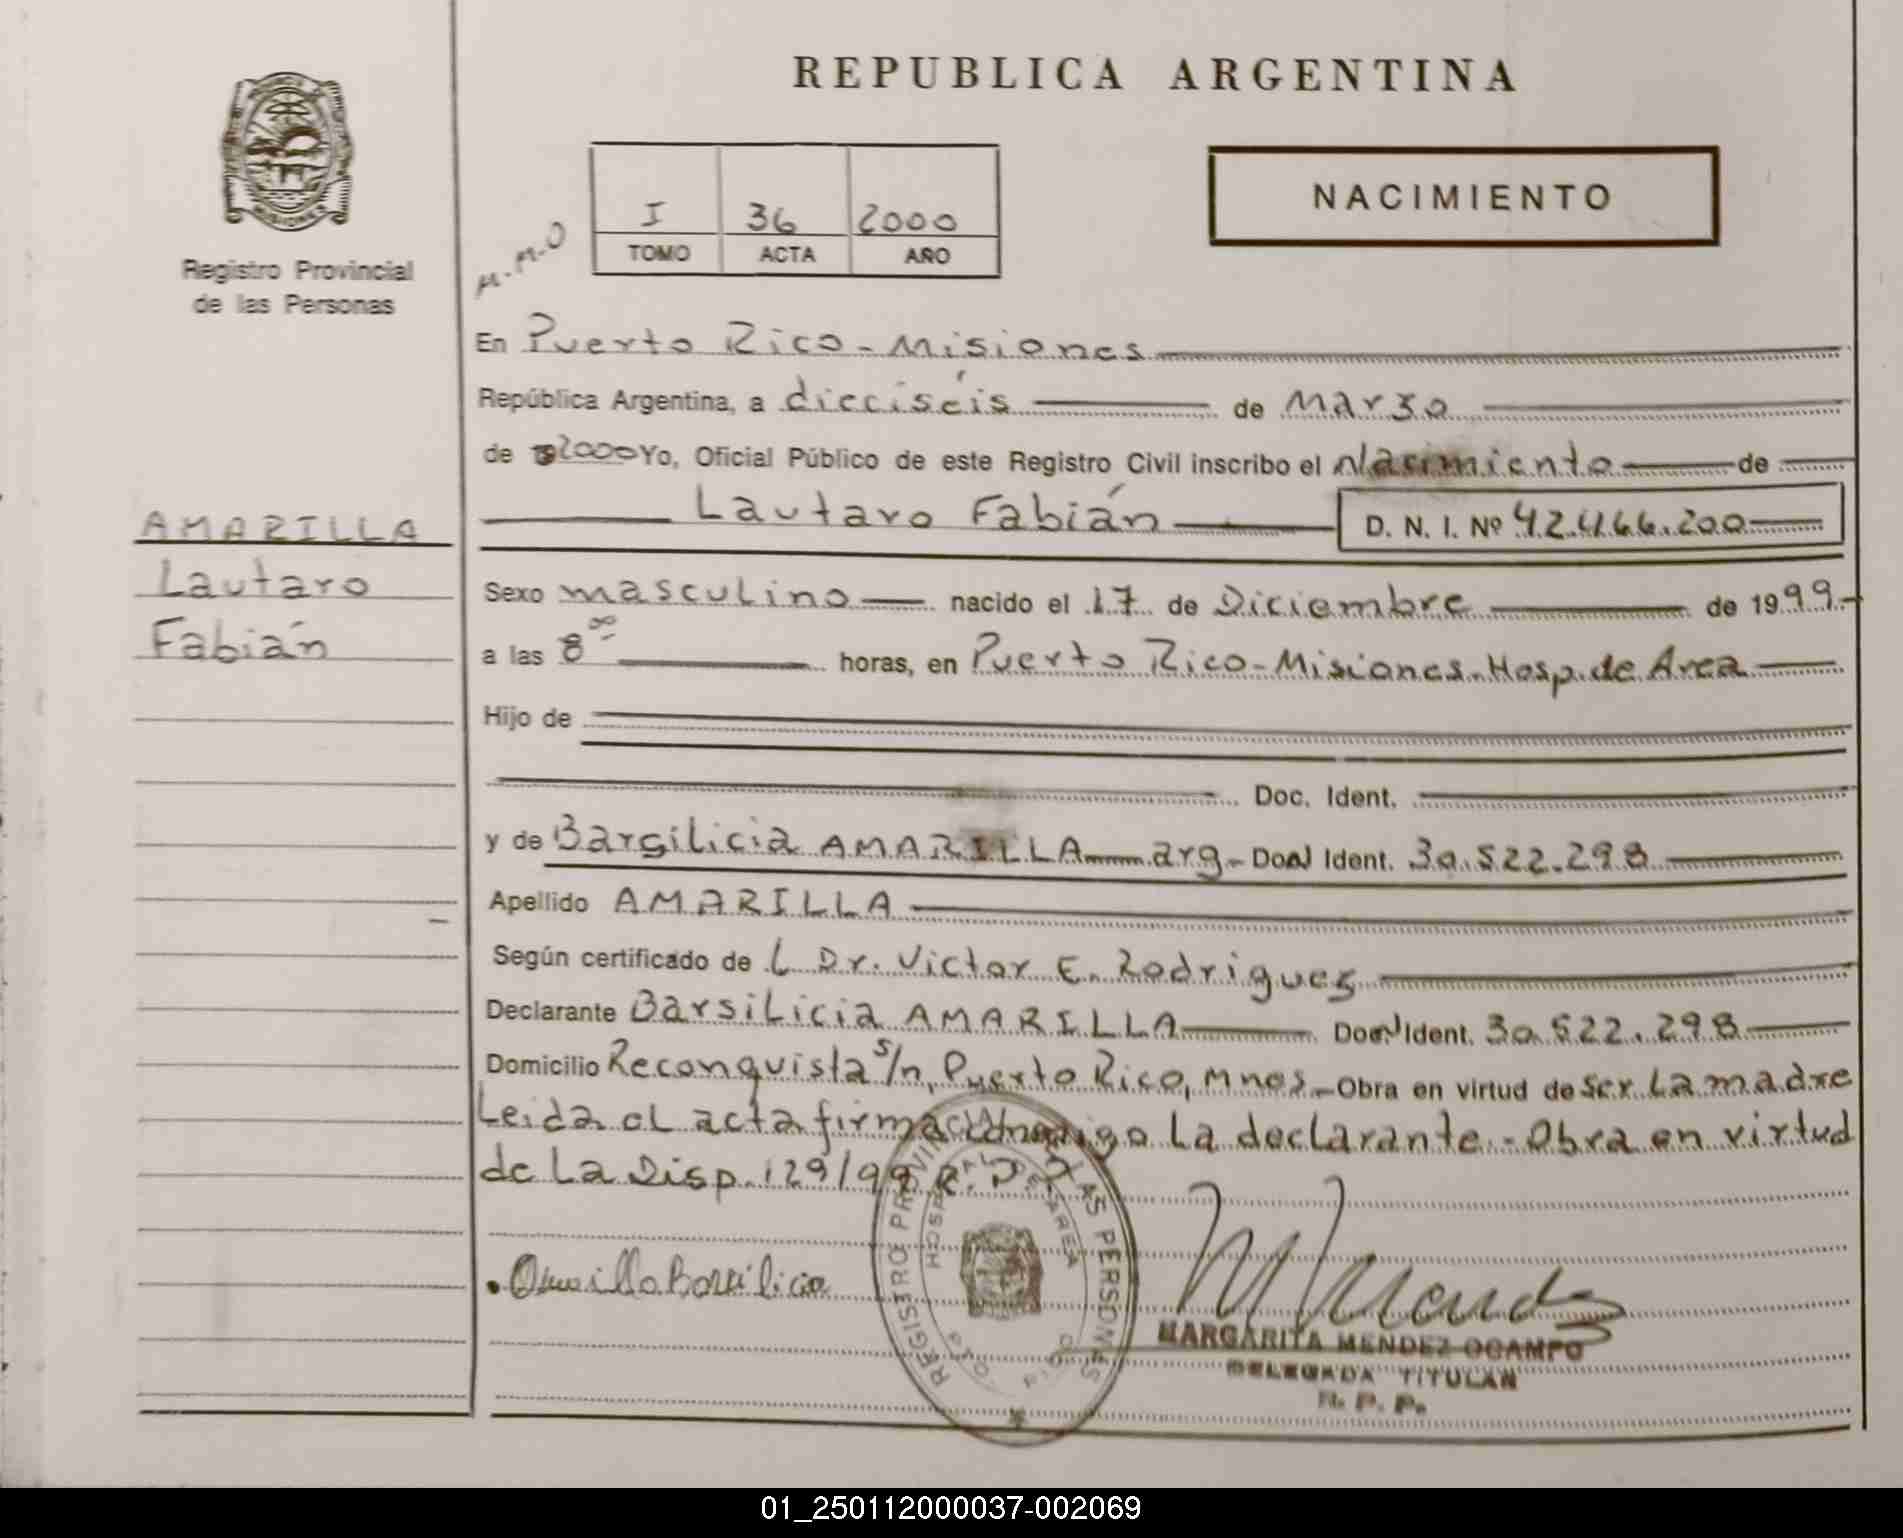 REPUBLICA ARGENTINA
MISIONES
Registro Provincial
de las Personas
M.M.O
I 36 2000
TOMO ACTA AÑO
NACIMIENTO
En Puerto Rico - Misiones
República Argentina, a dieciséis de Marzo
de 2000 Yo, Oficial Público de este Registro Civil inscribo el Nacimiento de
Lautaro Fabián D. N. I. Nº 42.466.200
AMARILLA
Lautaro
Fabián
Sexo masculino nacido el 17 de Diciembre de 1999
a las 8°° horas, en Puerto Rico - Misiones - Hosp. de Area
Hijo de
Doc. Ident.
y de Barsilicia AMARILLA arg - Ident. 30.522.298
Apellido AMARILLA
Según certificado de L Dr. Victor E. Rodrigues
Declarante Barsilicia AMARILLA Ident. 30.522.298
Domicilio Reconquista s/n, Puerto Rico, Mnes - Obra en virtud de ser La madre
Leida el acta firma conmigo La declarante - Obra en virtud
de La Disp. 129/99 R.P.P
Barsilicia
REGISTRO PROVINCIAL DE LAS PERSONAS
HOSPITAL DE AREA
MARGARITA MENDEZ OCAMPO
DELEGADA TITULAR
R. P. P.
01_250112000037-002069